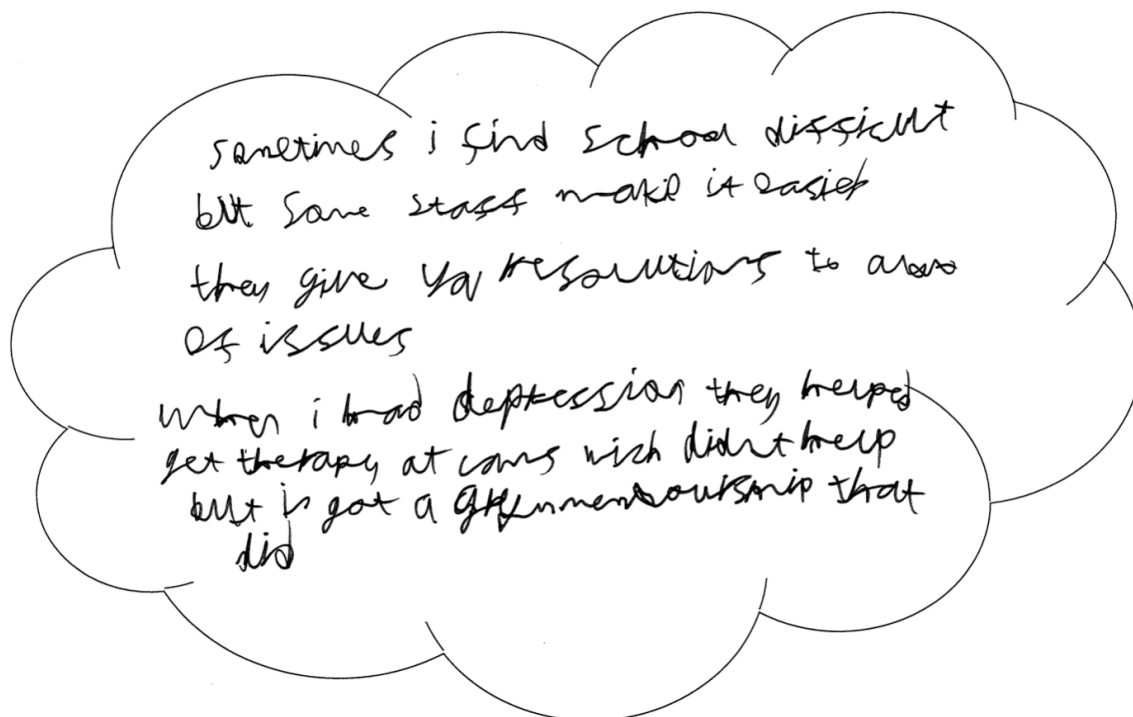 sometimes i find school difficult
but some staff make it easier
they give you resolutions to
of issues
when i had depression they helped
get therapy at cams wich didnt help
but i got a that
did